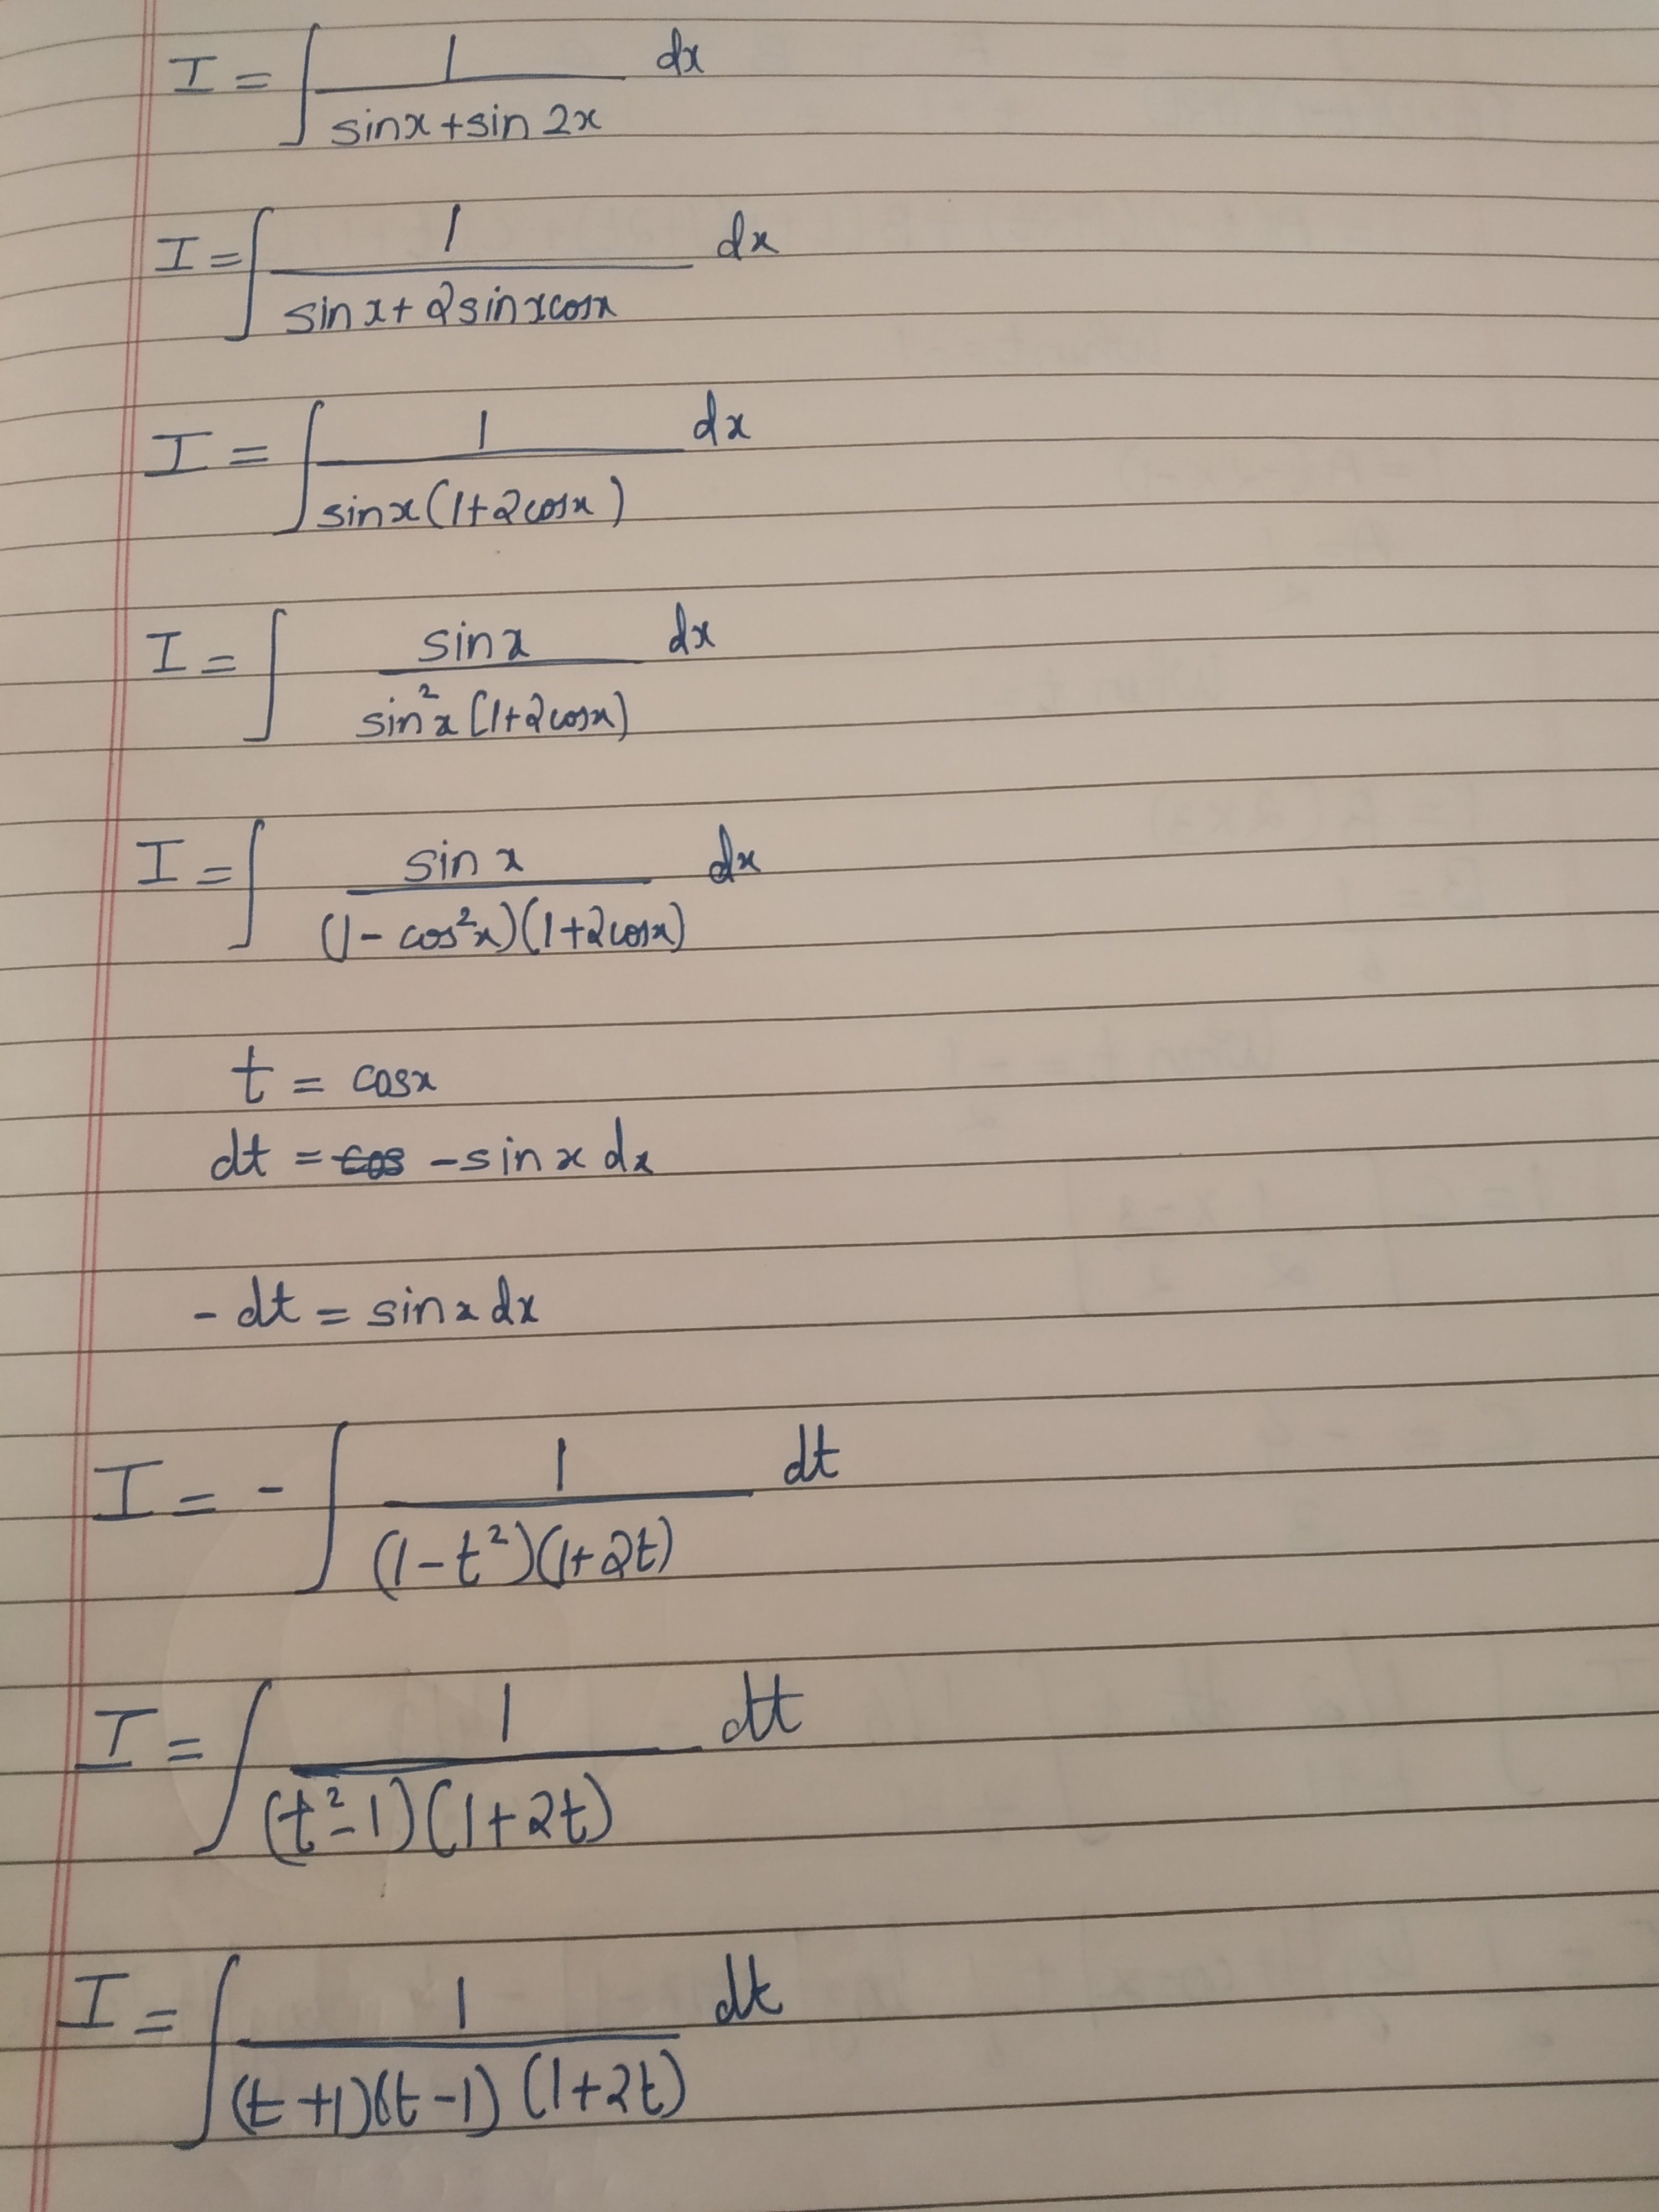 I = ∫ 1/(sinx + sin 2x) dx
I = ∫ 1/(sin x + 2sinxcosx) dx
I = ∫ 1/(sinx(1+2cosx)) dx
I = ∫ sinx/(sin²x(1+2cosx)) dx
I = ∫ sin x/((1 - cos²x)(1+2cosx)) dx
t = cosx
dt = cos -sin x dx
- dt = sinx dx
I = - ∫ 1/((1-t²)(1+2t)) dt
I = ∫ 1/((t²-1)(1+2t)) dt
I = ∫ 1/((t+1)(t-1)(1+2t)) dt